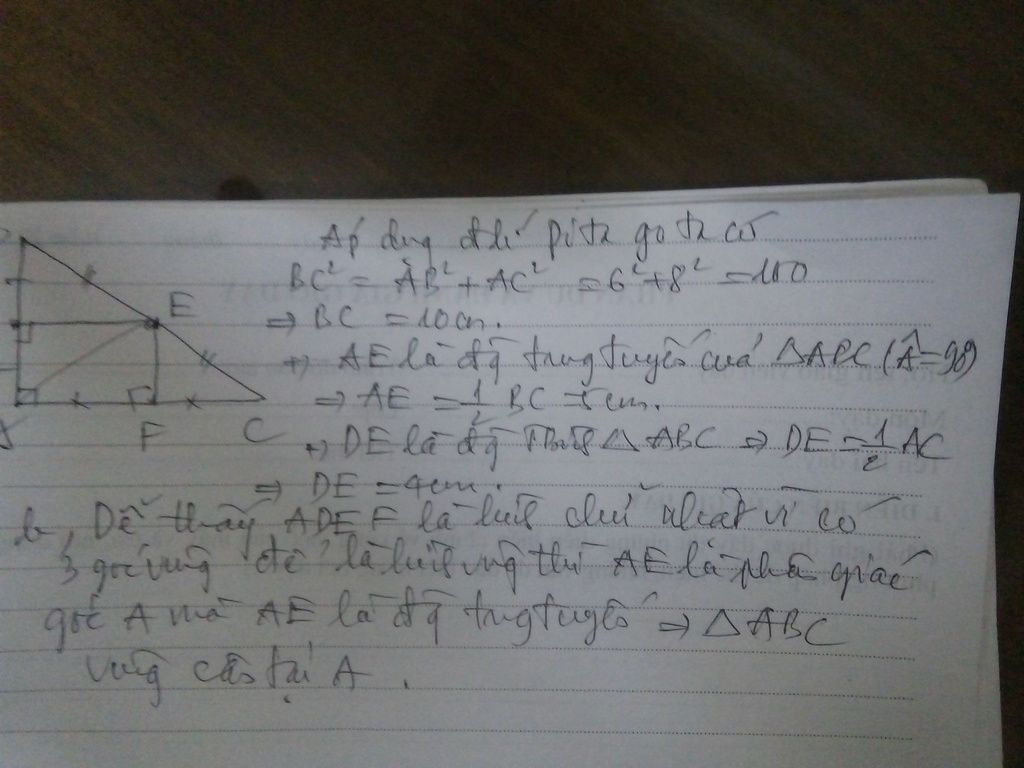 Áp dụng đlí pi ta go ta có
BC² = AB² + AC² = 6² + 8² = 100
E
⇒ BC = 10 cm.
+) AE là đg trung tuyến của △ABC (Â = 90)
⇒ AE = 1/2 BC = 5 cm.
F C
+) DE là đg △ ABC ⇒ DE = 1/2 AC
⇒ DE = 4 cm.
b, Dễ thấy ADEF là hình chữ nhật vì có
3 góc vuông để là hình vuông thì AE là phân giác
góc A mà AE là đg trung tuyến ⇒ △ ABC
vuông cân tại A.